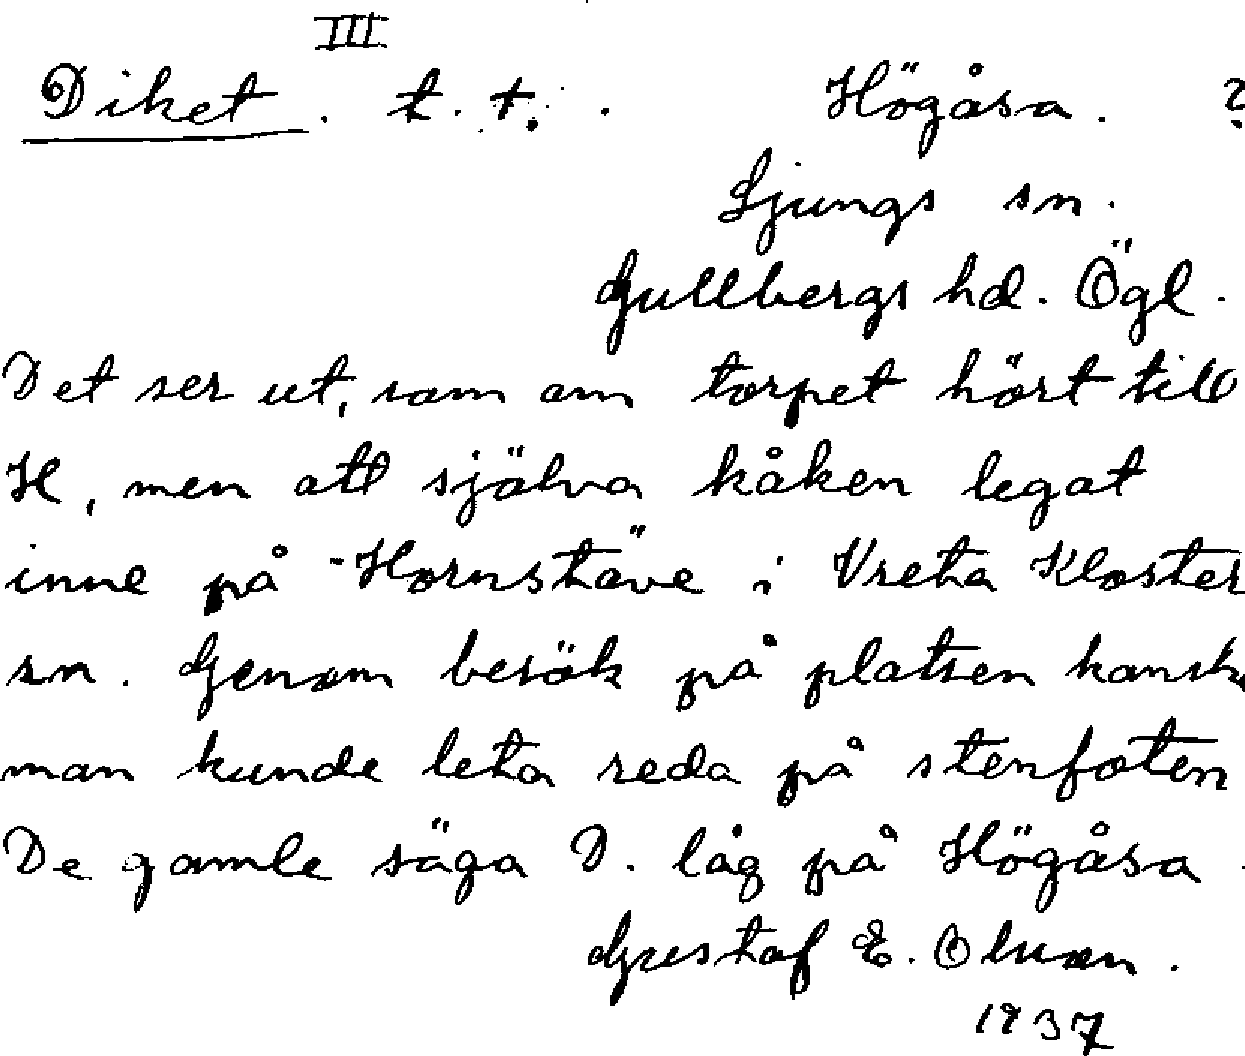 III
Diket. t. t. . Högåsa. ?
Ljungs sn.
Gullbergs hd. Ögl.
Det ser ut, som om torpet hört till
H, men att själva kåken legat
inne på Hornstäve i Vreta Kloster
sn. Genom besök på platsen kansk
man kunde leta reda på stenfoten
De gamle säga D. låg på Högåsa.
Gustaf E. Olsson.
1937